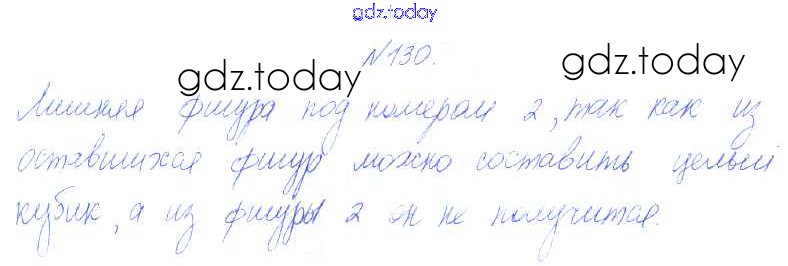 gdz.today
№130.
gdz.today gdz.today
Лишняя фигура под номером 2, так как из
оставшихся фигур можно составить целый
кубик, а из фигуры 2 он не получится.